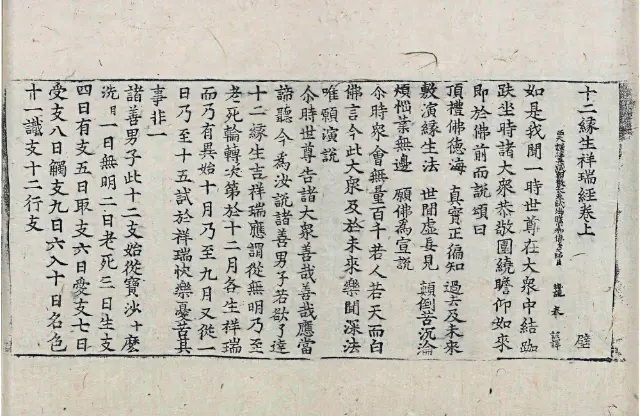 十二緣生祥瑞經卷上
璧
詔譯
如是我聞一時世尊在大衆中結跏
趺坐時諸大衆恭敬圍繞瞻仰如來
即於佛前而說頌曰
頂禮佛德海 真實正徧知 過去及未來
敷演緣生法 世間虛妄見 顛倒苦沉淪
煩惱業無邊 願佛爲宣說
尒時衆會無量百千若人若天而白
佛言今此大衆及於未來樂聞深法
唯願演說
尒時世尊告諸大衆善哉善哉應當
諦聽今爲汝說諸善男子若欲了達
十二緣生吉祥瑞應謂從無明乃至
老死輪轉次第於十二月各生祥瑞
而乃有異始十月乃至九月又從一
日乃至十五試於祥瑞快樂憂苦其
事非一
諸善男子此十二支始從寶沙十麽
洗日一日無明二日老死三日生支
四日有支五日取支六日愛支七日
受支八日觸支九日六入十日名色
十一識支十二行支